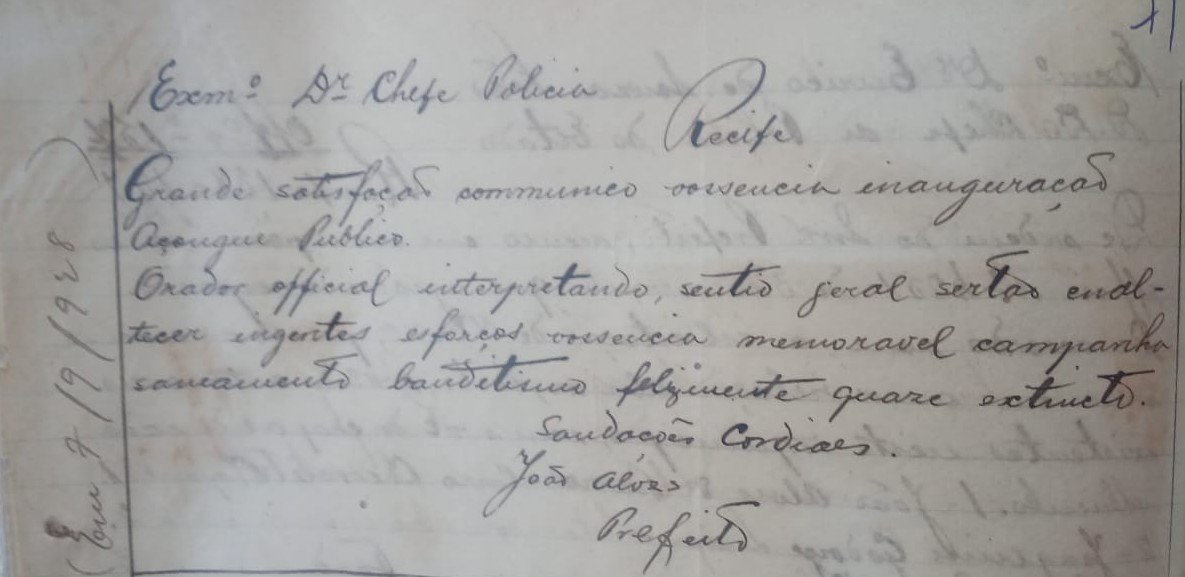 Exmº Dr Chefe Policia
Recife
Grande satisfação communico vossencia inauguração
Açougue Publico.
Orador official interpretando, sentio geral sertão enal-
tecer ingentes esforços vossencia memoravel campanha
saneamento banditismo felizmente quaze extincto.
Saudações Cordiaes.
João Alves
Prefeito
Em 7/9/928